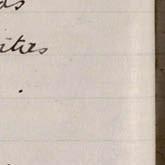 as
ities
.